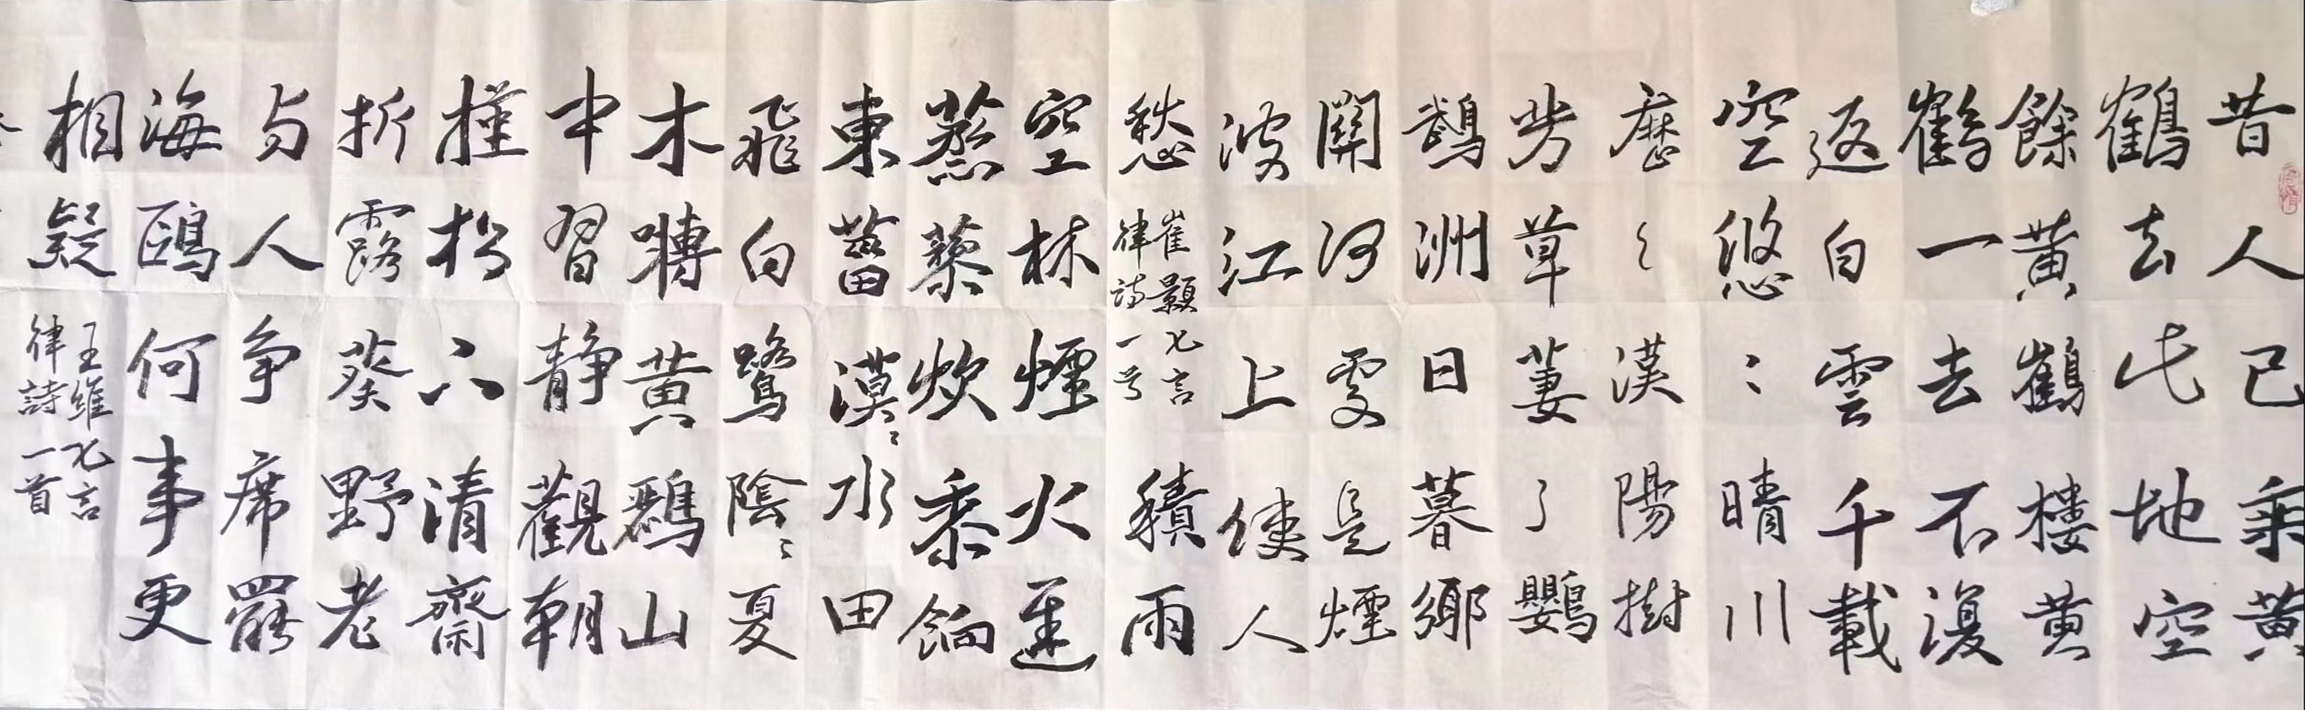 昔人已乘黃
鶴去此地空
餘黃鶴樓黃
鶴一去不復
返白雲千載
空悠〻晴川
歷〻漢陽樹
芳草萋〻鸚
鵡洲日暮鄉
關何處是煙
波江上使人
愁
崔顥七言
律詩一首
積雨
空林煙火遲
蒸藜炊黍餉
東菑漠〻水田
飛白鷺陰〻夏
木囀黃鸝山
中習靜觀朝
槿松下清齋
折露葵野老
与人爭席罷
海鷗何事更
相疑
王維七言
律詩一首